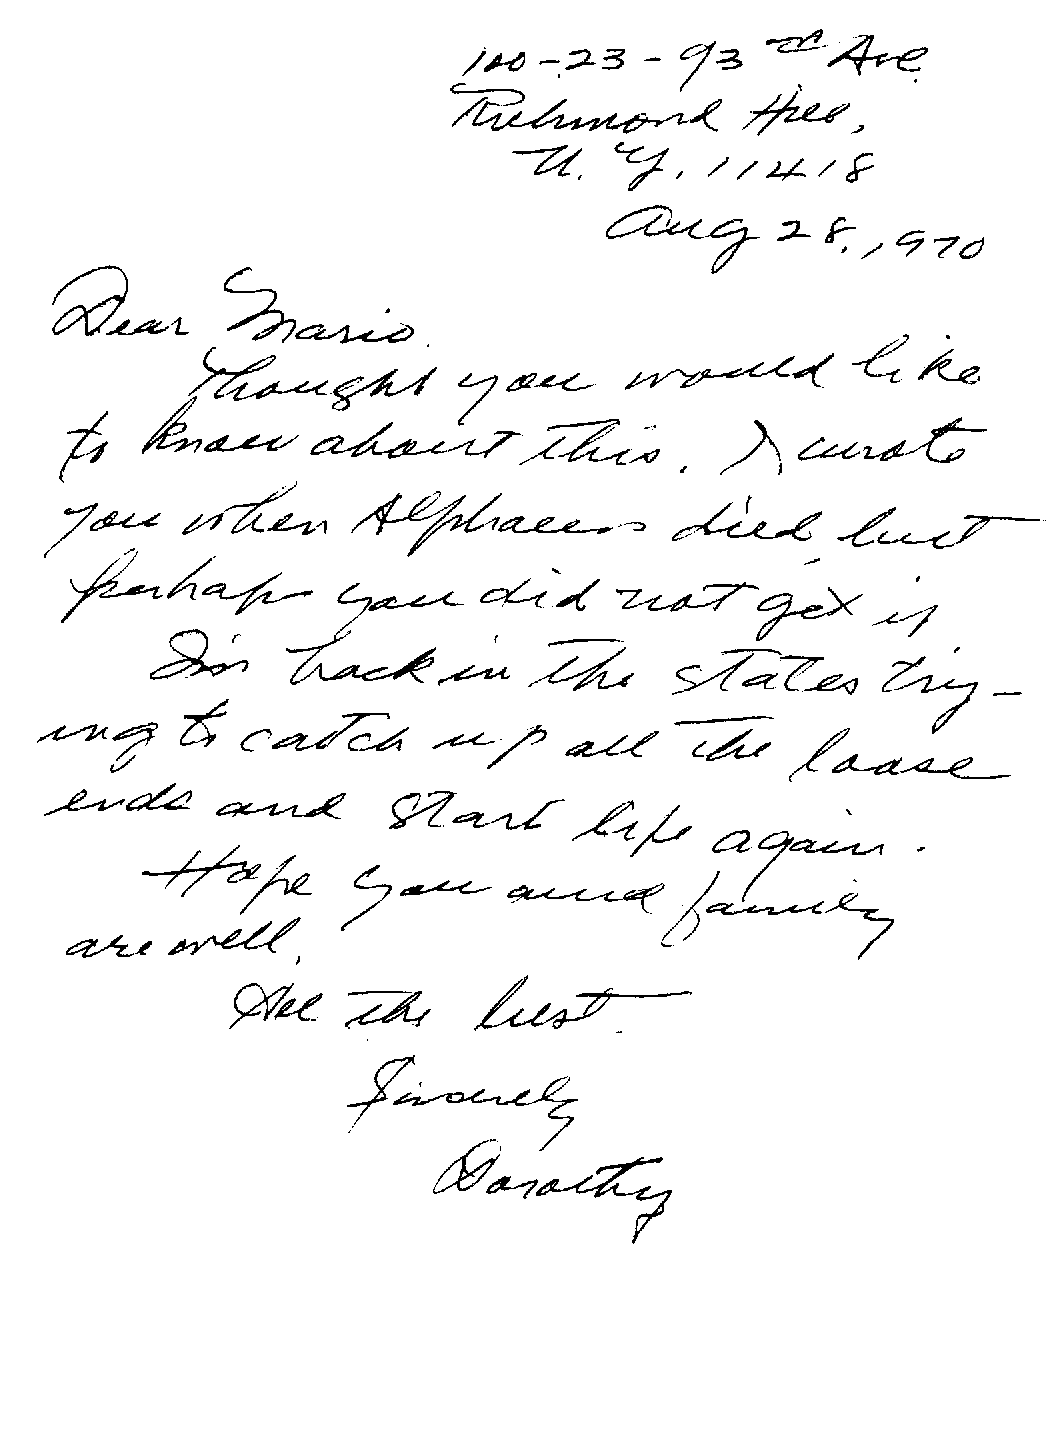 100-23-93rd Ave.
Richmond Hill,
N. Y. 11418
Aug 28, 1970
Dear Mario.
Thought you would like
to know about this. I wrote
you when Alphaeus died, but
perhaps you did not get it
I'm back in the states try-
ing to catch up all the loose
ends and start life again.
Hope you and family
are well.
All the best.
Sincerely
Dorothy